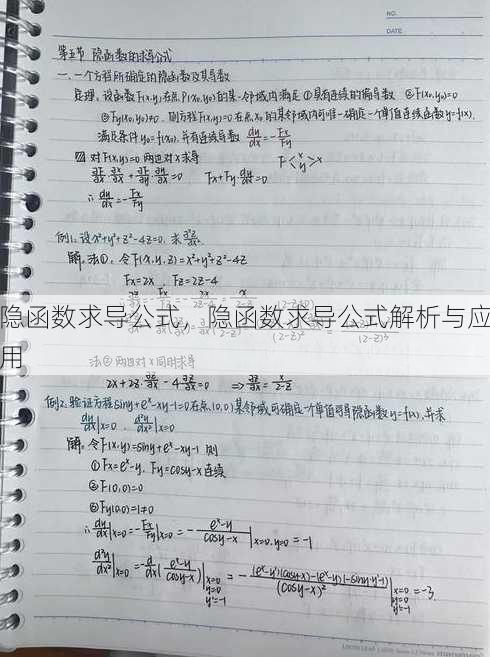 NO.
DATE
第五节 隐函数的求导公式
一、一个方程所确定的隐函数及其导数
定理,设函数F(x,y),在点P(x₀,y₀)的某一邻域内满足 ①具有连续的偏导数 ②F(x₀,y₀)=0
③Fy(x₀,y₀)≠0. 则方程F(x,y)=0在点x₀的某邻域内可唯一确定一个单值连续函数y=f(x).
满足条件y₀=f(x₀),并有连续导数 dy/dx=-Fx/Fy
对F(x,y)=0两边对x求导 F<x y>x
∂F/∂x·∂x/∂x+∂F/∂y·∂y/∂x=0 Fx+Fy·dy/dx=0
∴dy/dx=-Fx/Fy
例1,设x²+y²+z²-4z=0,求∂²z/∂x².
解,法①,令F(x,y,z)=x²+y²+z²-4z
Fx=2x Fz=2z-4
隐函数求导公式,隐函数求导公式解析与应
用
法②两边对x同时求导
2x+2z·∂z/∂x-4∂z/∂x=0 ⇒∂z/∂x=x/2-z
例2,验证方程siny+eˣ-xy-1=0在点(0,0)某邻域可确定一个单值可导隐函数y=f(x),并求
dy/dx|x=0, d²y/dx²|x=0
解,令F(x,y)=siny+eˣ-xy-1 则
①Fx=eˣ-y, Fy=cosy-x连续
②F(0,0)=0
③Fy(0,0)=1≠0
∴dy/dx|x=0=-Fx/Fy|x=0=-eˣ-y/cosy-x|x=0,y=0=-1
d²y/dx²|x=0=-d/dx(eˣ-y/cosy-x)|x=0 y=0 y'=-1=-(eˣ-y')(cosy-x)-(eˣ-y)(-siny·y'-1)/(cosy-x)²|x=0 y=0 y'=-1=-3